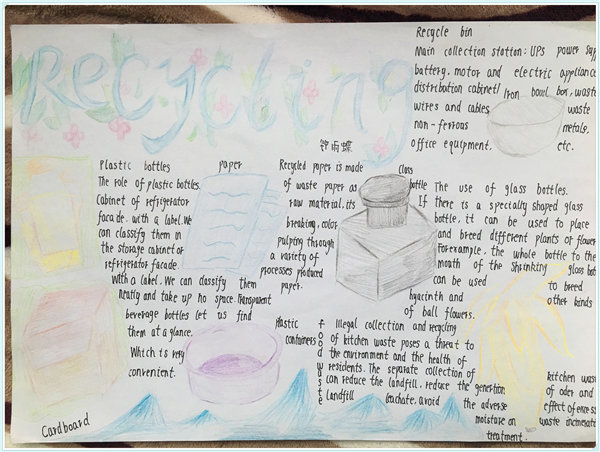 Recycling
Recycle bin
Main collection station: UPS power
battery, motor and electric appliance
distribution cabinet! Iron bowl, box, waste
wires and cables, waste
non-ferrous metals,
office equipment, etc.
钟雨蝶
Plastic bottles
The role of plastic bottles.
Cabinet of refrigerator
facade. with a label. We
can classify them in
the storage cabinet or
refrigerator facade
With a label. We can classify them
neatly and take up no space. Transparent
beverage bottles let us find
them at a glance.
Which is very
convenient.
paper
Recycled paper is made
of waste paper as
raw material, its
breaking, color
pulping through
a variety of
processes produced
paper.
Glass
bottle
The use of glass bottles.
If there is a specially shaped glass
bottle, it can be used to place
and breed different plants or flowers
For example, the whole bottle to the
mouth of the shrinking glass
can be used to breed
hyacinth and other kinds
of ball flowers.
Plastic
containers
food waste
Illegal collection and recycling
of kitchen waste poses a threat to
the environment and the health of
residents. The separate collection of kitchen
can reduce the landfill, reduce the genertion of oder and
landfill leachate, avoid the adverse effect of
moisture on waste
treatment.
Cardboard